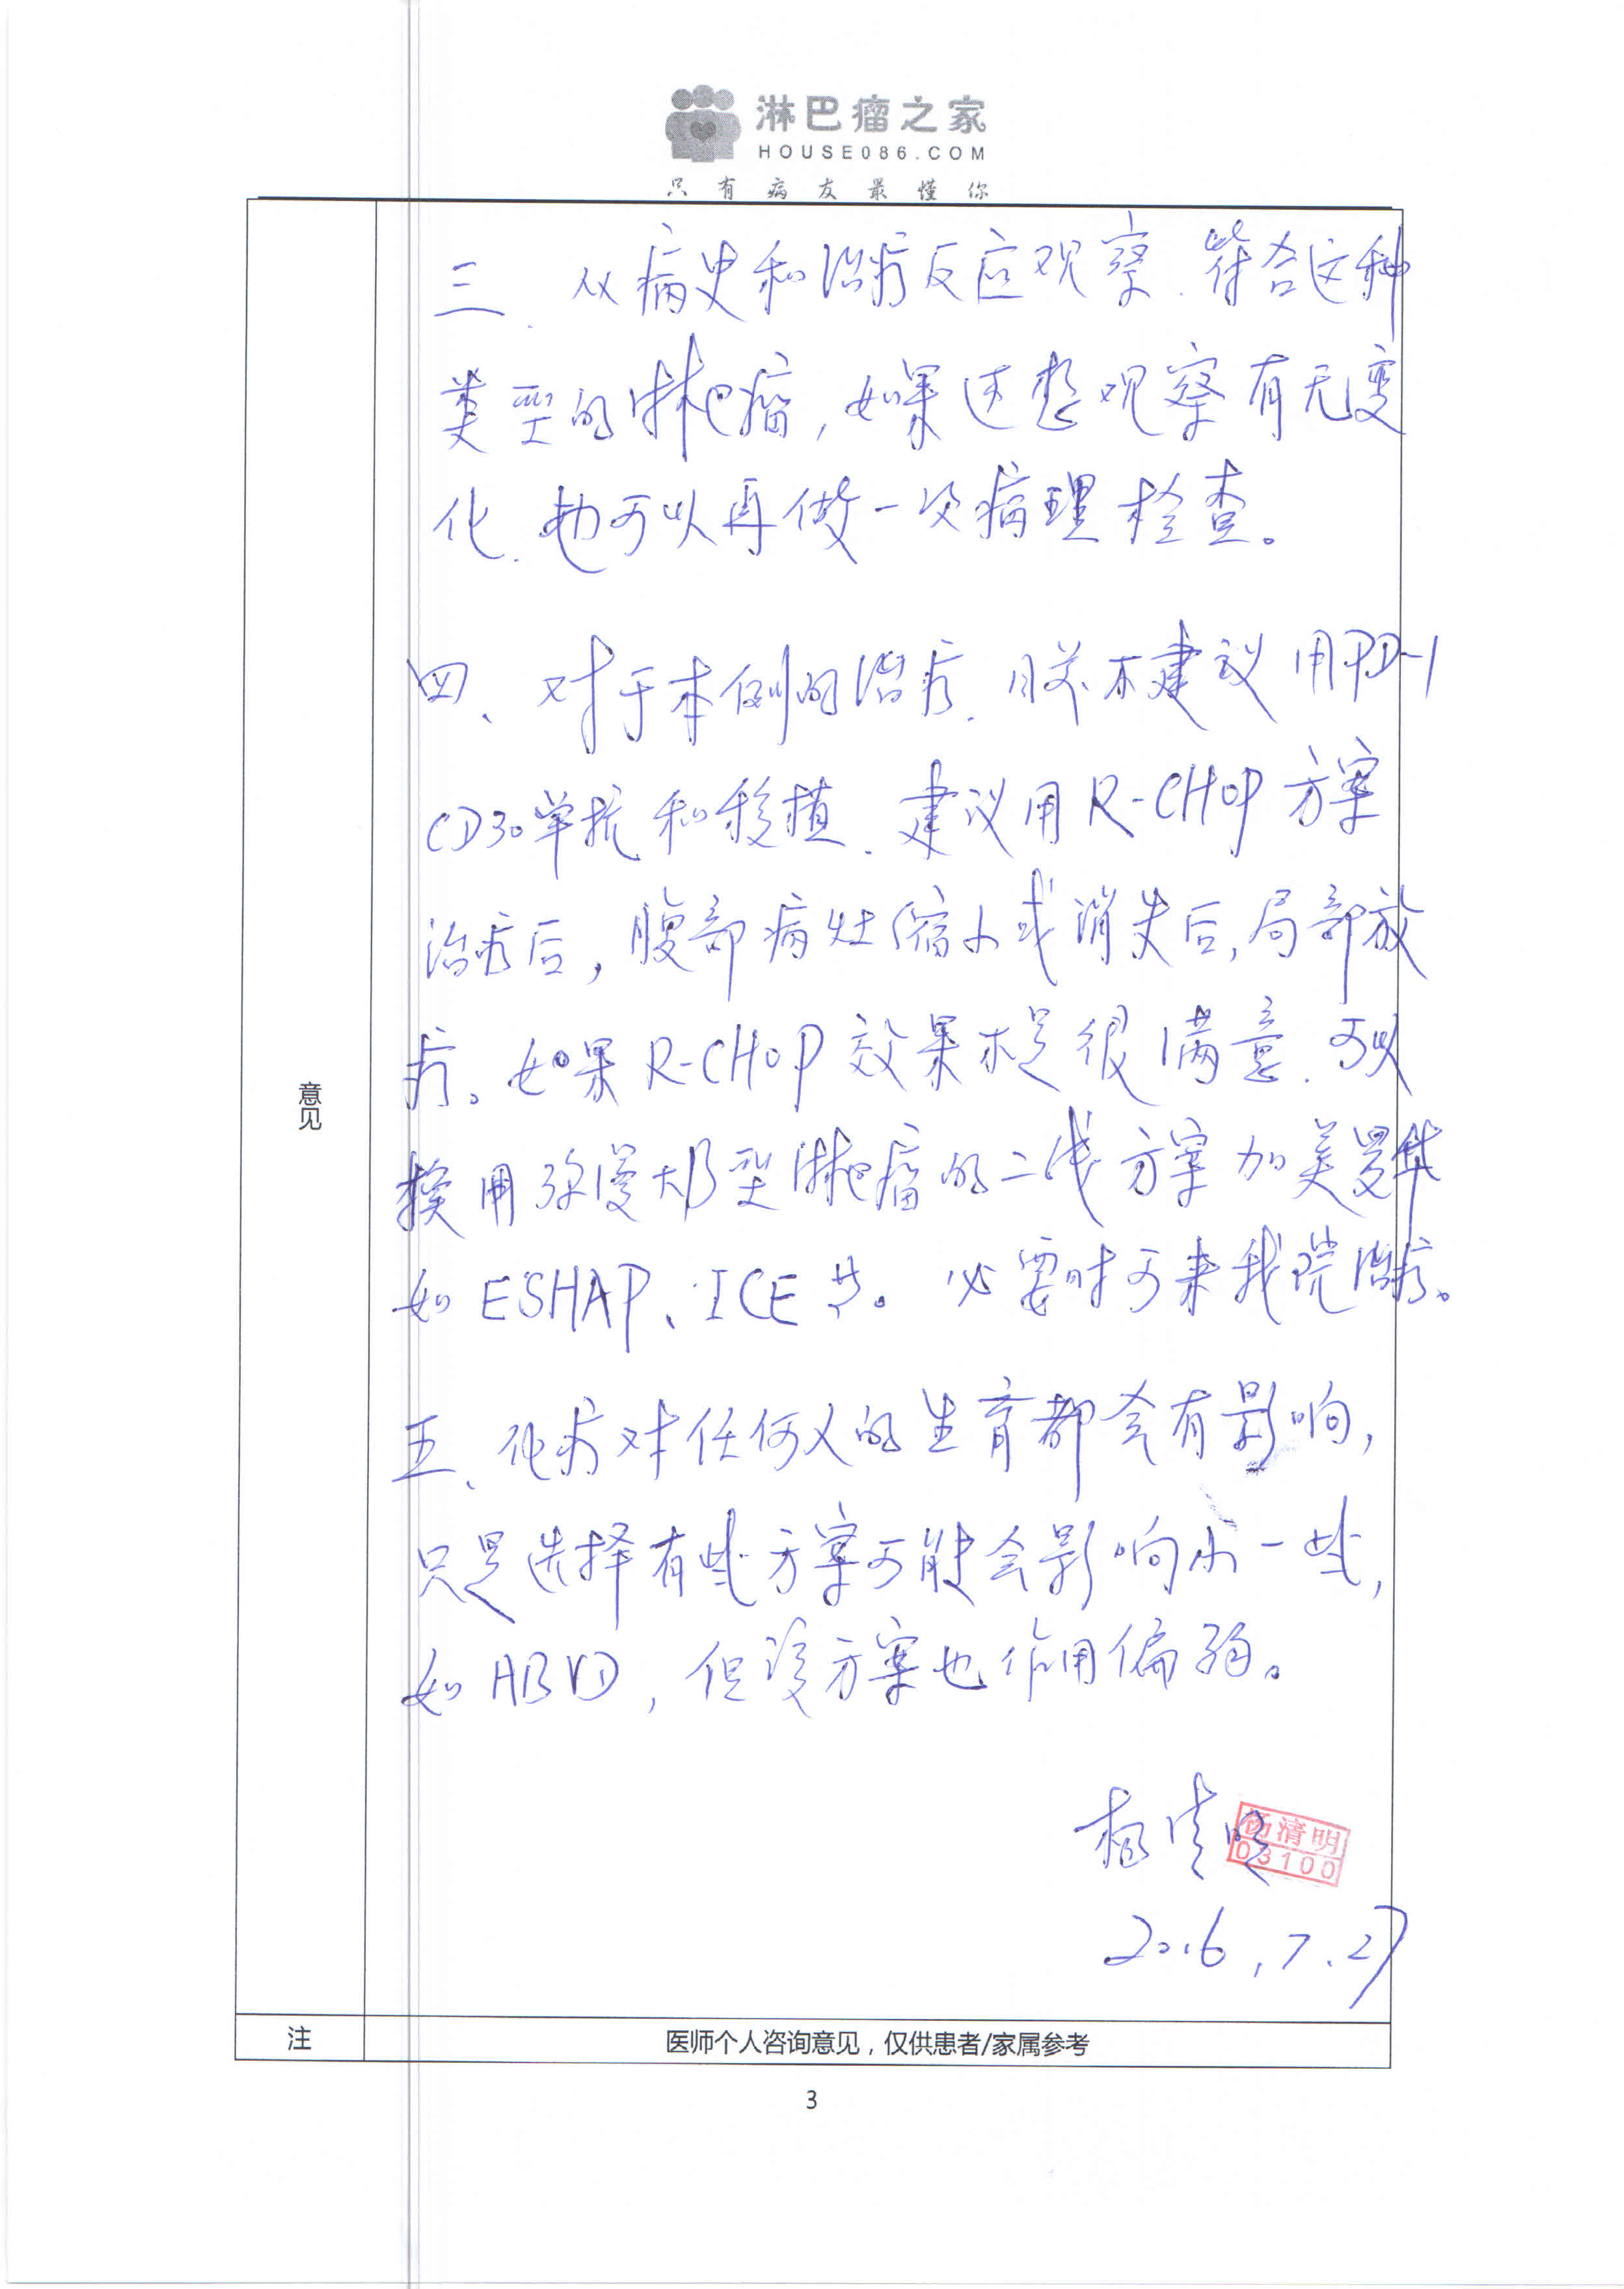 淋巴瘤之家
HOUSE086.COM
只有病友最懂你
三、从病史和治疗反应观察、符合这种
类型的淋巴瘤，如果还想观察有无变
化、也可以再做一次病理检查。
四、对于本例的治疗、目前不建议用PD-1
CD30单抗和移植、建议用R-CHOP方案
治疗后，腹部病灶缩小或消失后，局部放
疗。如果R-CHOP效果不是很满意、可以
换用弥漫大B型淋巴瘤的二线方案加美罗华
如ESHAP、ICE等。必要时可来我院治疗。
五、化疗对任何人的生育都会有影响，
只是选择有些方案可能会影响小一些，
如ABVD，但该方案也作用偏弱。
意见
杨清明
杨清明
03100
2016.7.27
注
医师个人咨询意见，仅供患者/家属参考
3